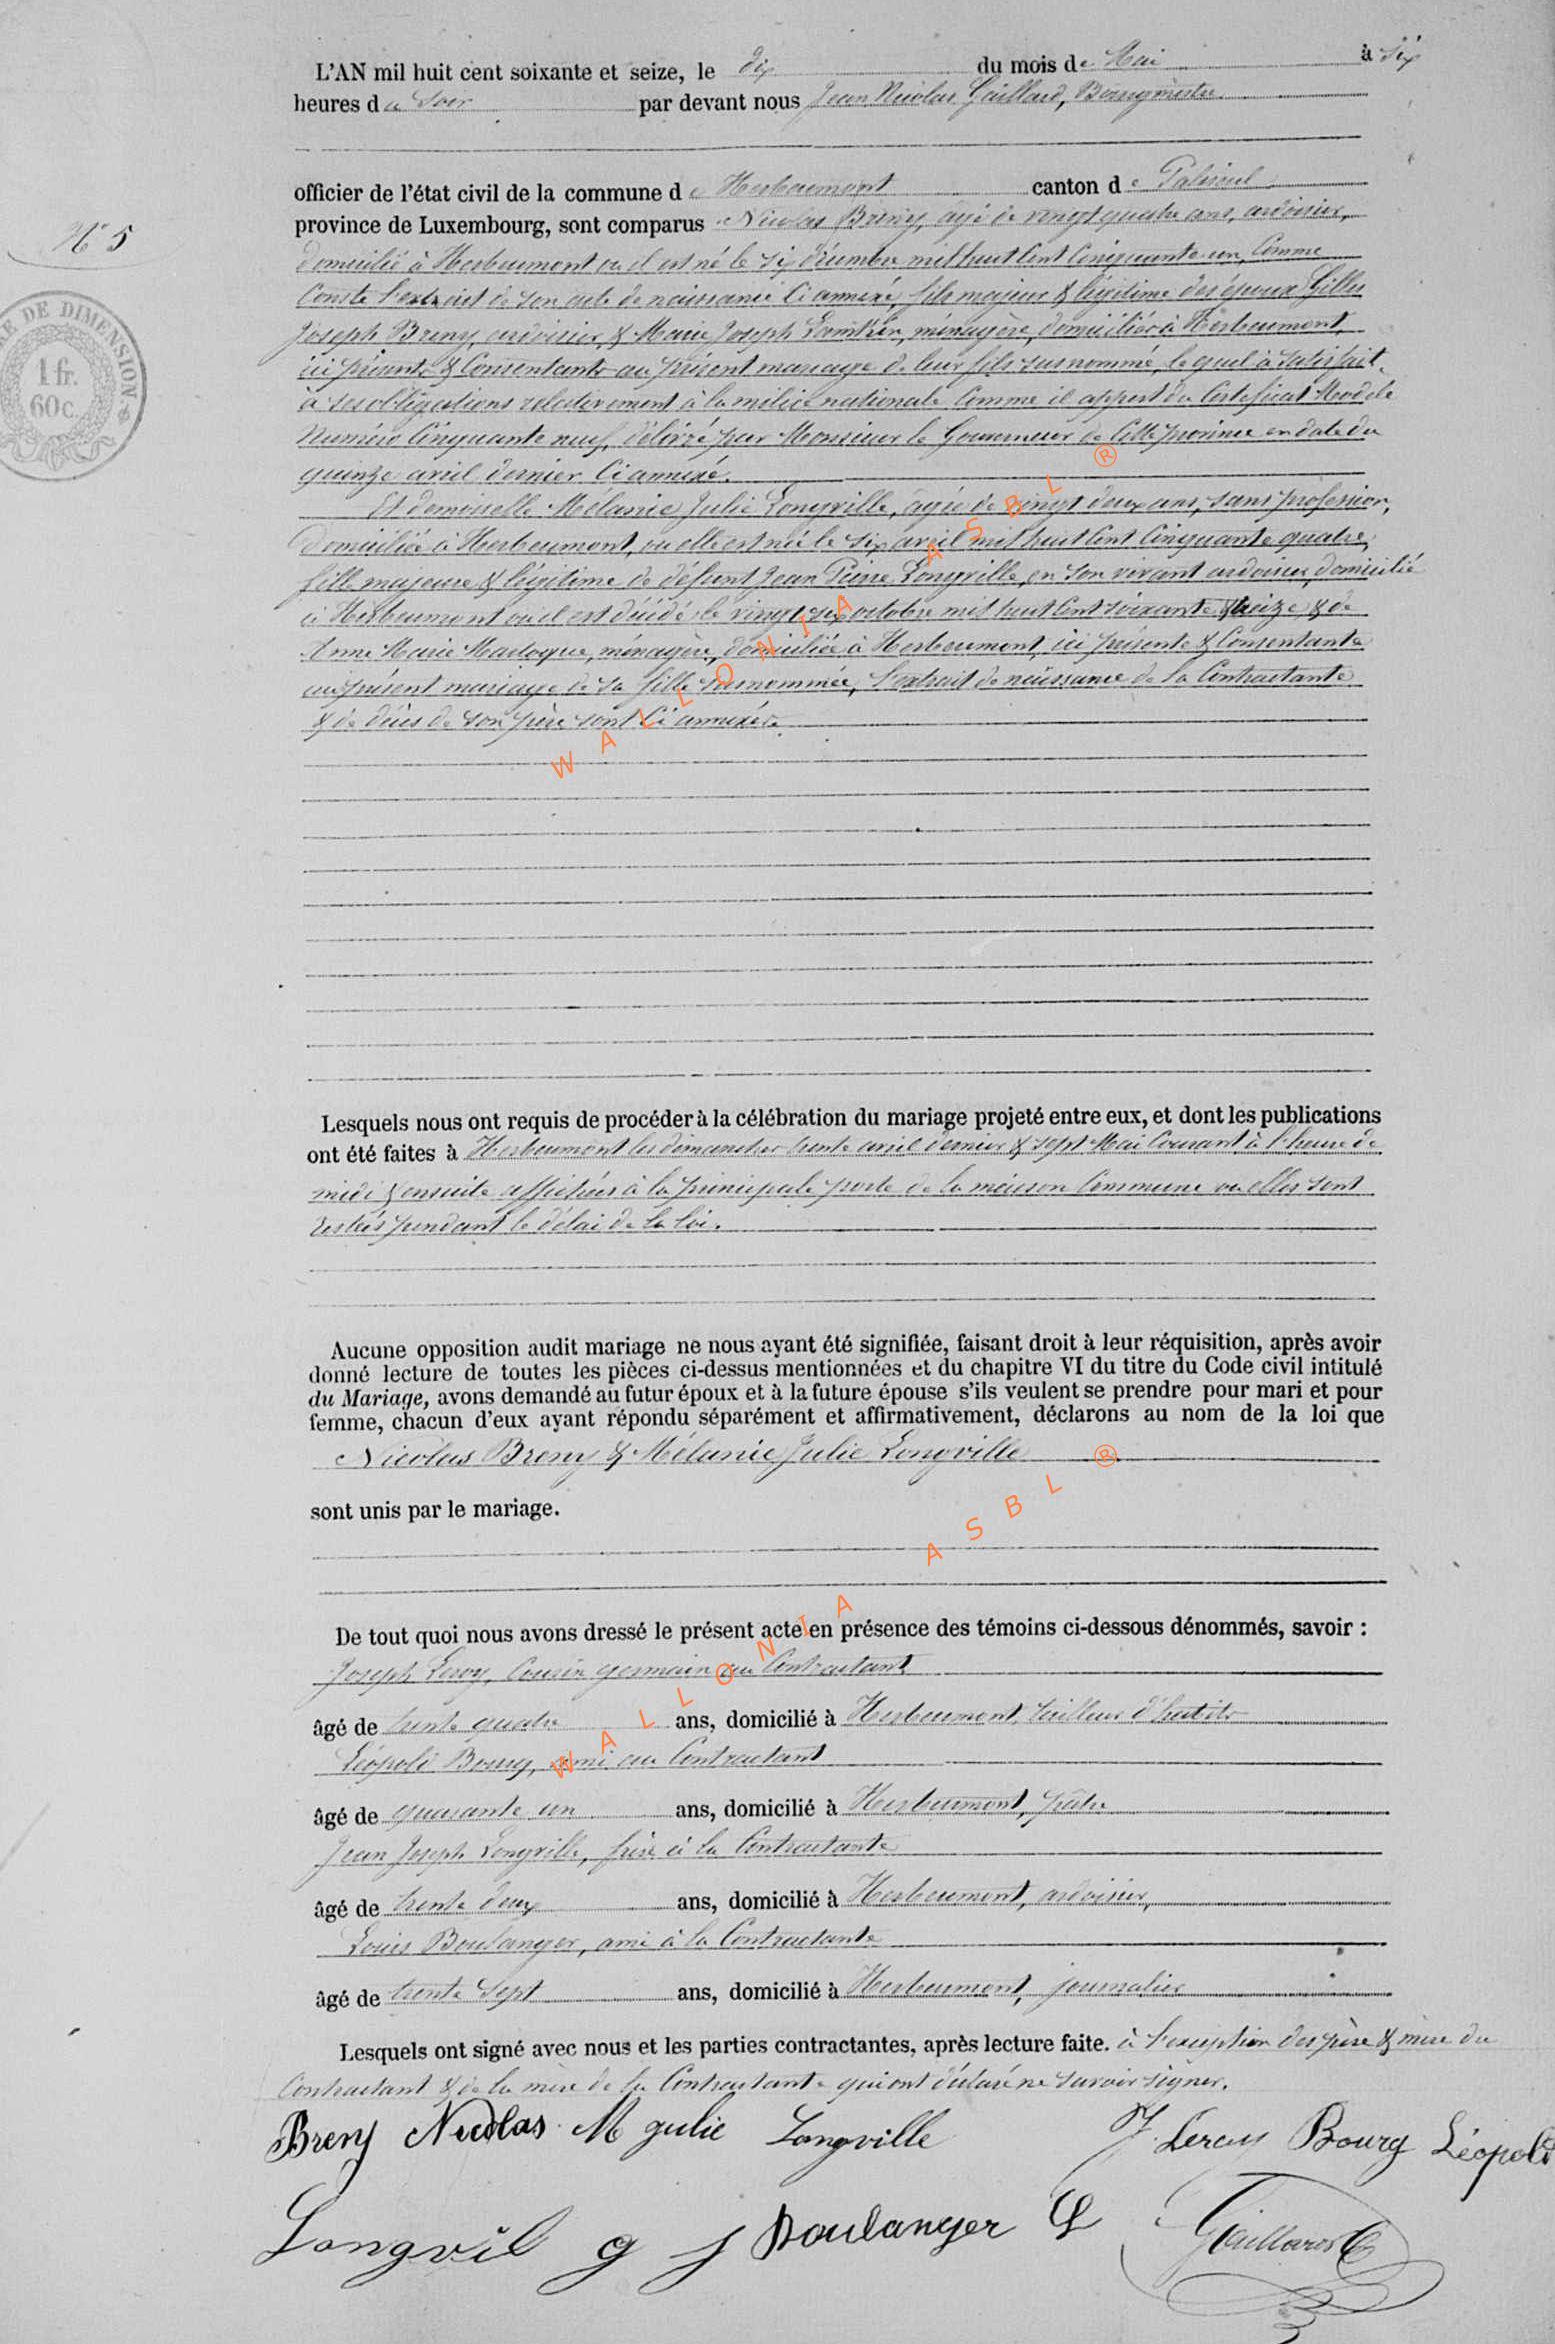 L'AN mil huit cent soixante et seize, le dix du mois de Mai à six
heures du Soir par devant nous Jean Nicolas Gaillard, Bourgmestre
officier de l'état civil de la commune de Herbeumont canton de Paliseul
N° 5
province de Luxembourg, sont comparus Nicolas Breny, âgé de vingt quatre ans, ardoisier,
domicilié à Herbeumont ou il est né le six décembre mil huit Cent Cinquante un, Comme
Conste l'extrait de son acte de naissance Ci annexé, fils majeur & légitime des époux Gilles
TRE DE DIMENSION
1 fr.
60 c.
Joseph Breny, ardoisier, & Marie Joseph ménagère, domiciliés à Herbeumont,
ici présents & Consentants au présent mariage de leur fils susnommé, lequel à satisfait
à ses obligations relativement à la milice nationale Comme il appert du Certificat Modèle
Numéro Cinquante neuf, délivré par Monsieur le Gouverneur de Cette province en date du
quinze avril dernier Ci annexé.
Et demoiselle Mélanie Julie Longville, âgée de vingt deux ans, sans profession,
domiciliée à Herbeumont, ou elle est née le six avril mil huit Cent Cinquante quatre,
fille majeure & légitime de défunt Jean Pierre Longville, en son vivant ardoisier, domicilié
à Herbeumont ou il est décédé le vingt six octobre mil huit Cent soixante & treize, & de
Anne Marie Marloque, ménagère, domiciliée à Herbeumont, ici présente & Consentante
au présent mariage de sa fille susnommée, l'extrait de naissance de la Contractante
& de décès de son père sont Ci annexés.
WALLONIA ASBL ®
Lesquels nous ont requis de procéder à la célébration du mariage projeté entre eux, et dont les publications
ont été faites à Herbeumont les dimanches trente avril dernier & sept Mai Courant à l'heure de
midi & ensuite affichées à la principale porte de la maison Commune ou elles sont
restés pendant le délai de la loi.
Aucune opposition audit mariage ne nous ayant été signifiée, faisant droit à leur réquisition, après avoir
donné lecture de toutes les pièces ci-dessus mentionnées et du chapitre VI du titre du Code civil intitulé
du Mariage, avons demandé au futur époux et à la future épouse s'ils veulent se prendre pour mari et pour
femme, chacun d'eux ayant répondu séparément et affirmativement, déclarons au nom de la loi que
Nicolas Breny & Mélanie Julie Longville
sont unis par le mariage.
WALLONIA ASBL ®
De tout quoi nous avons dressé le présent acte en présence des témoins ci-dessous dénommés, savoir :
Joseph Leroy, Cousin germain au Contractant
âgé de trente quatre ans, domicilié à Herbeumont, tailleur d'habits
Léopold Bourg, ami au Contractant
âgé de quarante un ans, domicilié à Herbeumont, pâtre
Jean Joseph Longville, frère à la Contractante
âgé de trente deux ans, domicilié à Herbeumont, ardoisier,
Louis Boulanger, ami à la Contractante
âgé de trente sept ans, domicilié à Herbeumont, journalier
Lesquels ont signé avec nous et les parties contractantes, après lecture faite. à l'exception des père & mère du
Contractant & de la mère de la Contractante qui ont déclaré ne savoir signer.
Breny Nicolas M Julie Longville J. Leroy Bourg Léopold
Longvil g J Boulanger L Gaillard